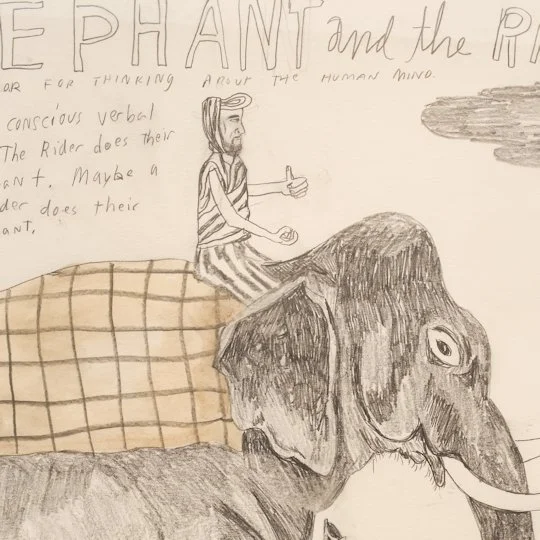 EPHANT and the RI
OR FOR THINKING ABOUT THE HUMAN MIND.
conscious verbal
The Rider does their
ANT. Maybe a
der does their
ANT.